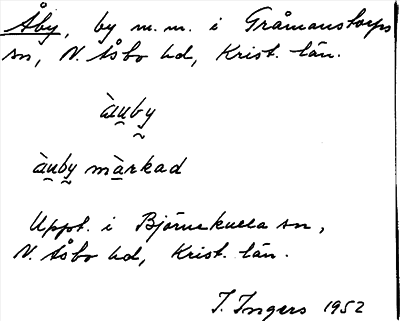 Åby, by m.m. i Gråmanstorps
sn, N. Åsbo hd, Krist. län.
àu̯by̰
àu̯by̰ màrkad
Uppt. i Björnekulla sn,
N. Åsbo hd, Krist. län.
I. Ingers 1952